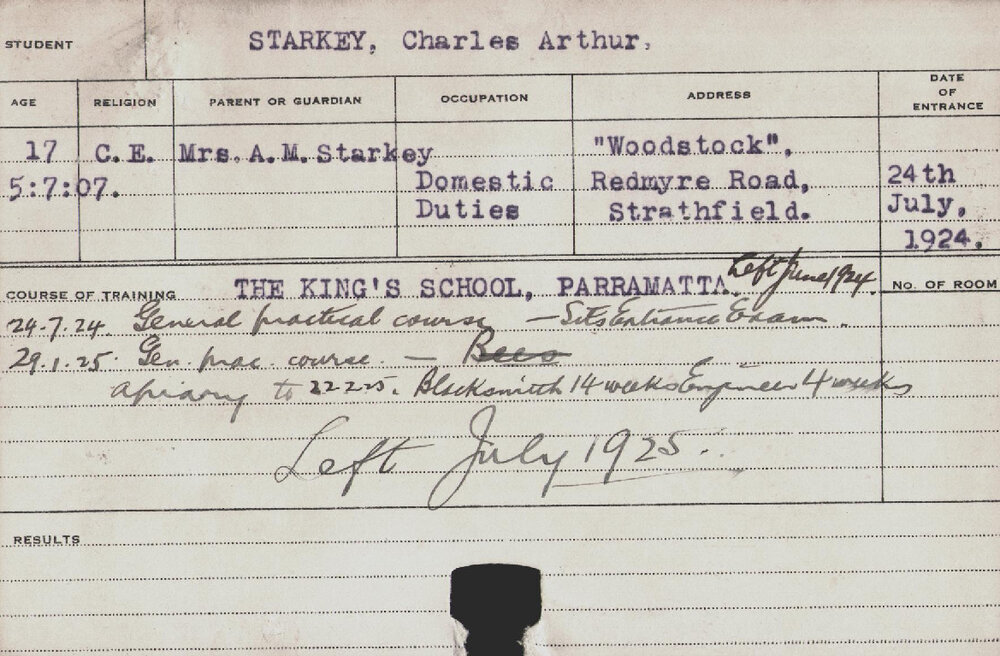 STUDENT STARKEY, Charles Arthur,
AGE RELIGION PARENT OR GUARDIAN OCCUPATION ADDRESS DATE OF ENTRANCE
17 C.E. Mrs. A.M. Starkey "Woodstock",
5:7:07. Domestic Redmyre Road, 24th
Duties Strathfield. July,
1924.
COURSE OF TRAINING THE KING'S SCHOOL, PARRAMATTA. Left June 1924. No. OF ROOM
24.7.24 General practical course — Sits Entrance Exam.
29.1.25. Gen. prac. course. — Bees
apiary to 22.2.25. Blacksmith 14 weeks Engineer 4 weeks
Left July 1925.
RESULTS